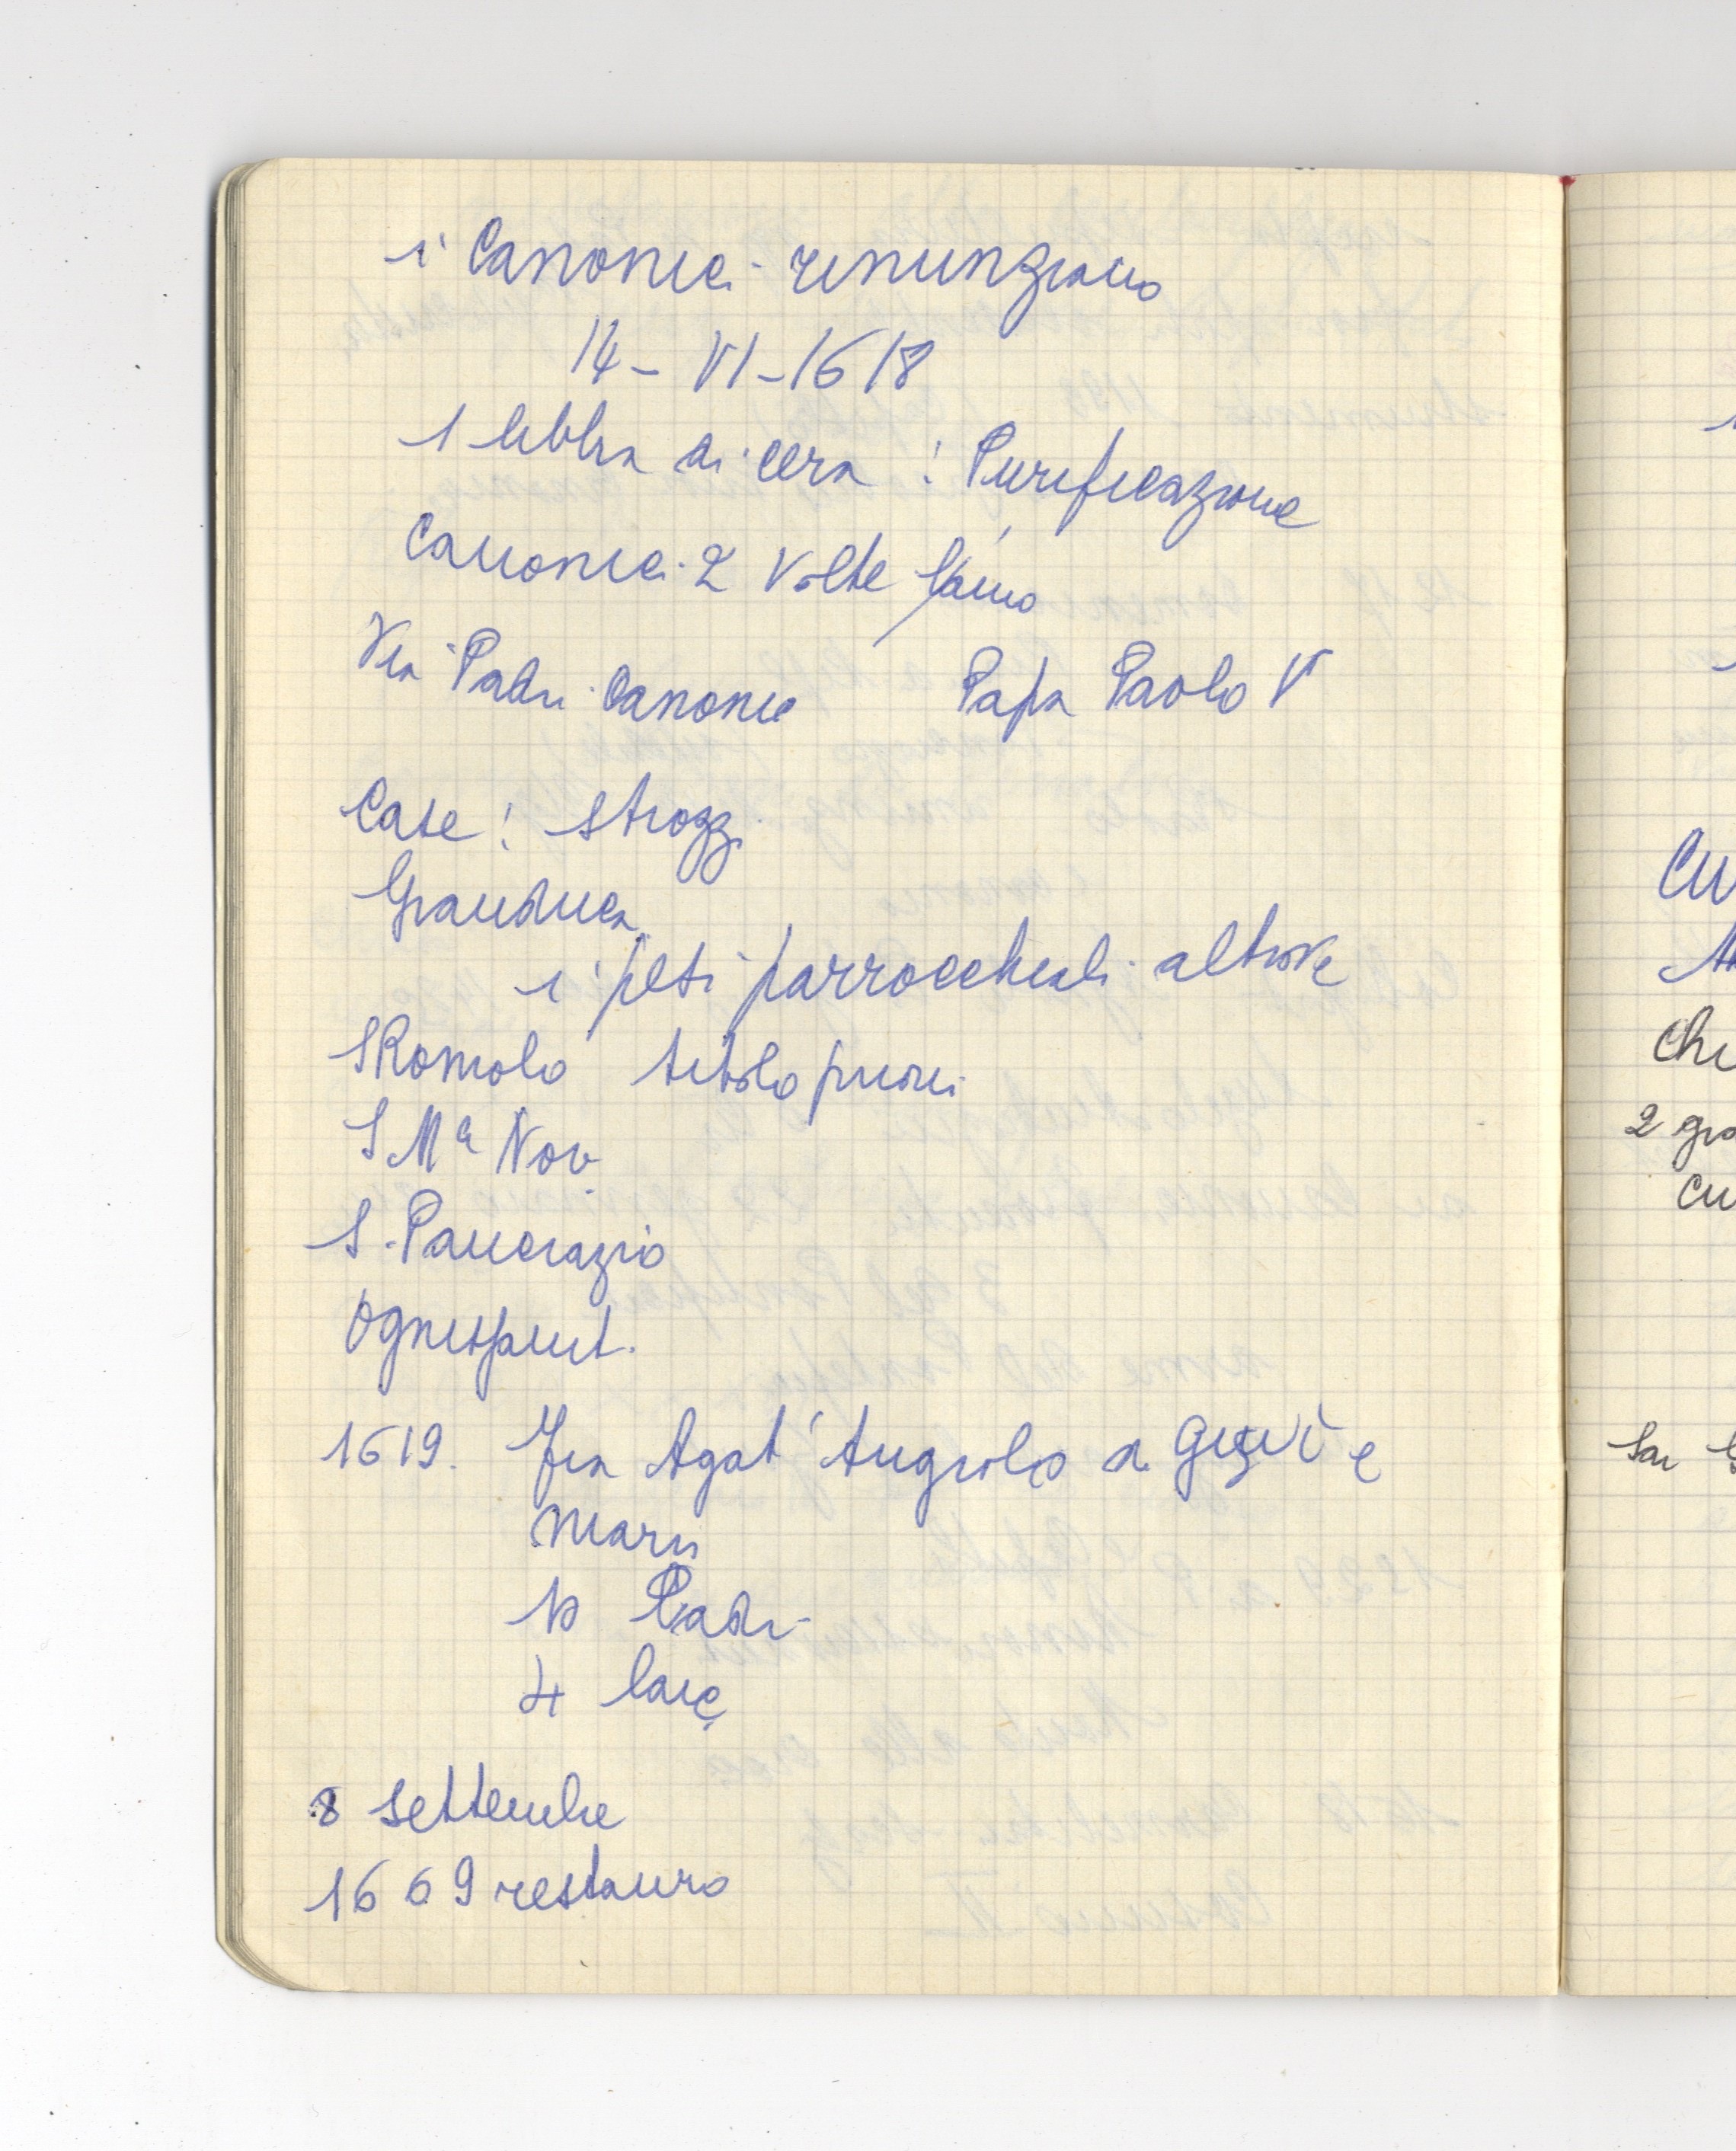 i Canonici rinunziano
14 - VI - 1618
1 libbra di cera : Purificazione
Canonici 2 volte l'anno
Via Padri Canonici Papa Paolo V
Case : Strozzi
Granduca
i pesi parrocchiali altrove
S Romolo titolo priori
S Mª Nov.
S. Pancrazio
Ognissant.
1619. Fra Agat'Angiolo a Gesù e
Maria
10 Padri
4 laici
8 settembre
1669 restauro